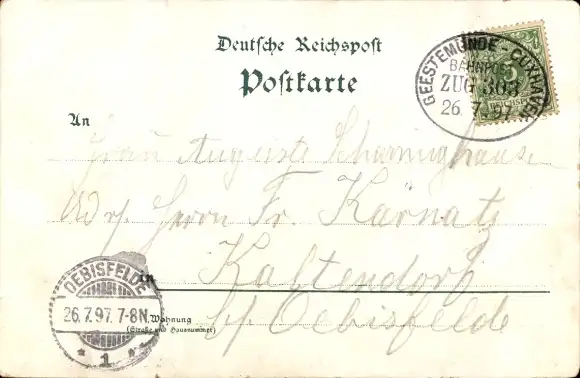 Deutsche Reichspost
Postkarte
GEESTEMÜNDE - CUXHAVEN
BAHNPOST
ZUG 303
26 7 97
5
REICHSPOST
An
Frau Auguste
Adr. Herrn Fr. Kärnatz
in Kaltendorf
OEBISFELDE
26.7.97.7-8N.
* 1 *
Wohnung
(Straße und Hausnummer)
b/ Oebisfelde